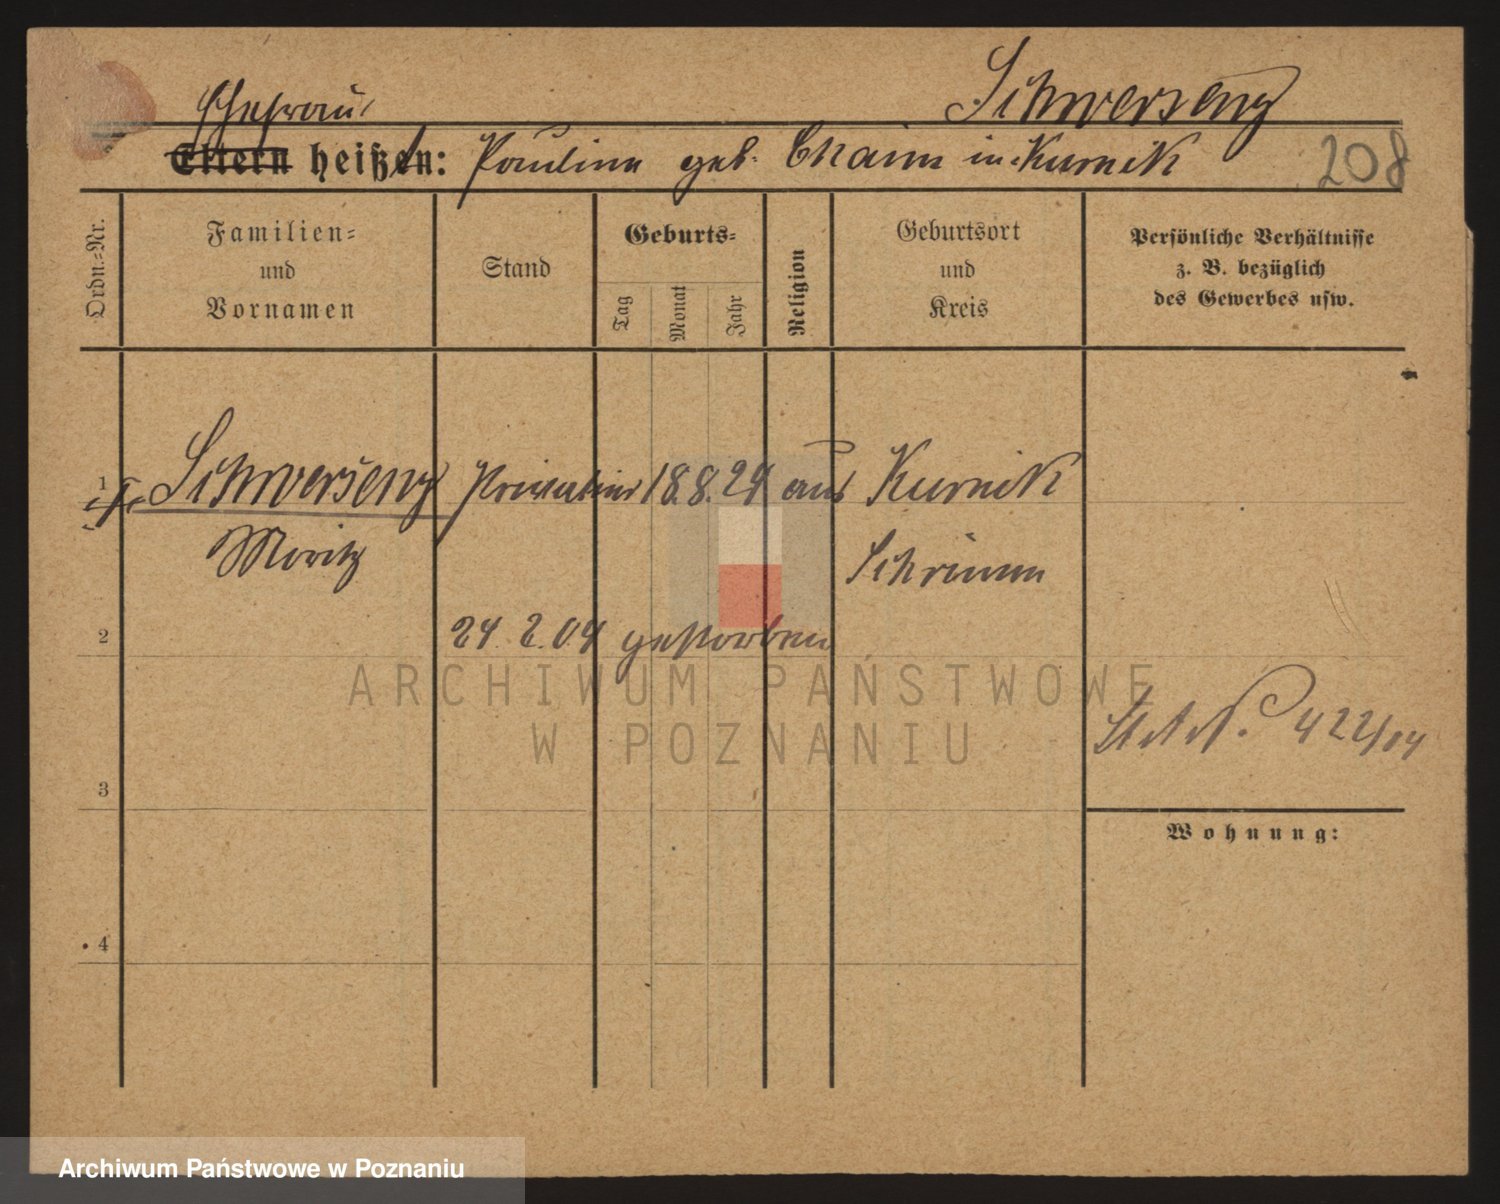 Schwersenz
Ehefrau
Eltern heißen: Pauline geb. Chaim in Kurnik 208
Ordn.-Nr.
Familien-
und
Vornamen
Stand
Geburts-
Tag
Monat
Jahr
Religion
Geburtsort
und
Kreis
Persönliche Verhältnisse
z. B. bezüglich
des Gewerbes usw.
1 Schwersenz Privatier 18.8.24 aus Kurnik
Moritz Schrimm
2 24. 2. 04 gestorben
ARCHIWUM PAŃSTWOWE
W POZNANIU
422/04
3
Wohnung:
4
Archiwum Państwowe w Poznaniu